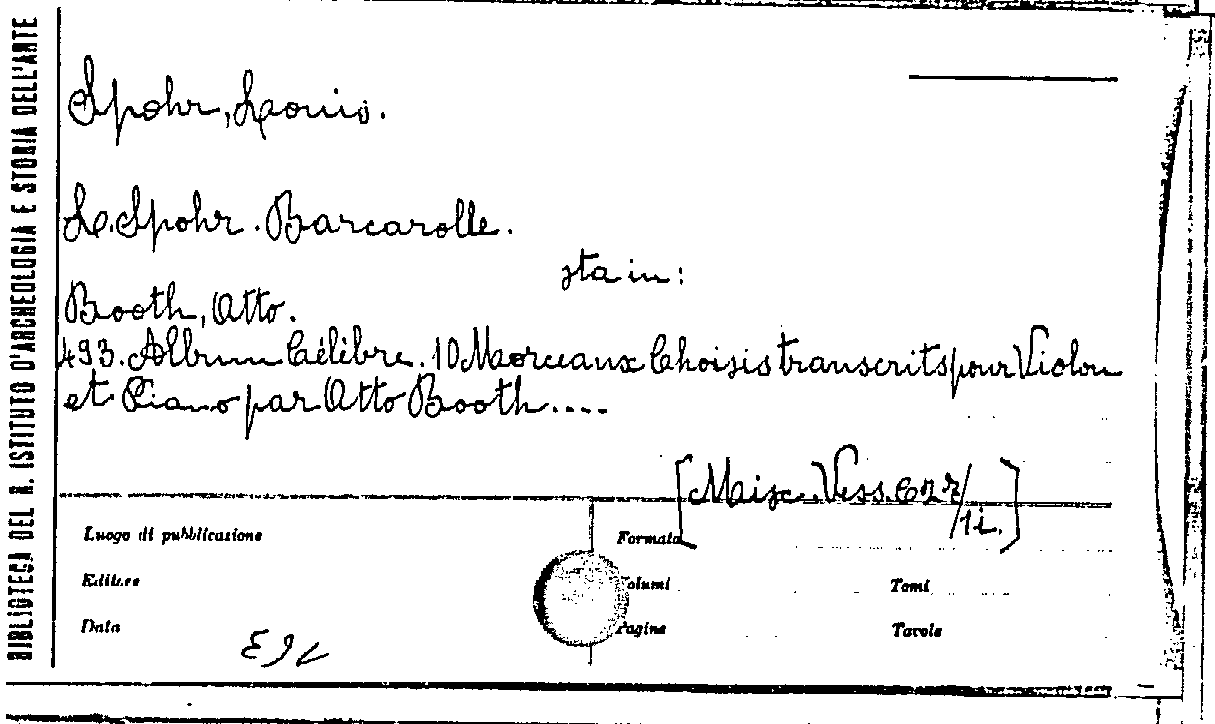 BIBLIOTECA DEL R. ISTITUTO D'ARCHEOLOGIA E STORIA DELL'ARTE
Spohr, Louis.
L. Spohr. Barcarolle.
sta in:
Booth, Otto.
493. Album Célèbre. 10 Morceaux Choisis transcrits pour Violon
et Piano par Otto Booth....
[Misc. Vess. 
/1i.]
Luogo di pubblicazione
Formato
Editore
Volumi
Tomi
Data
Pagine
Tavole